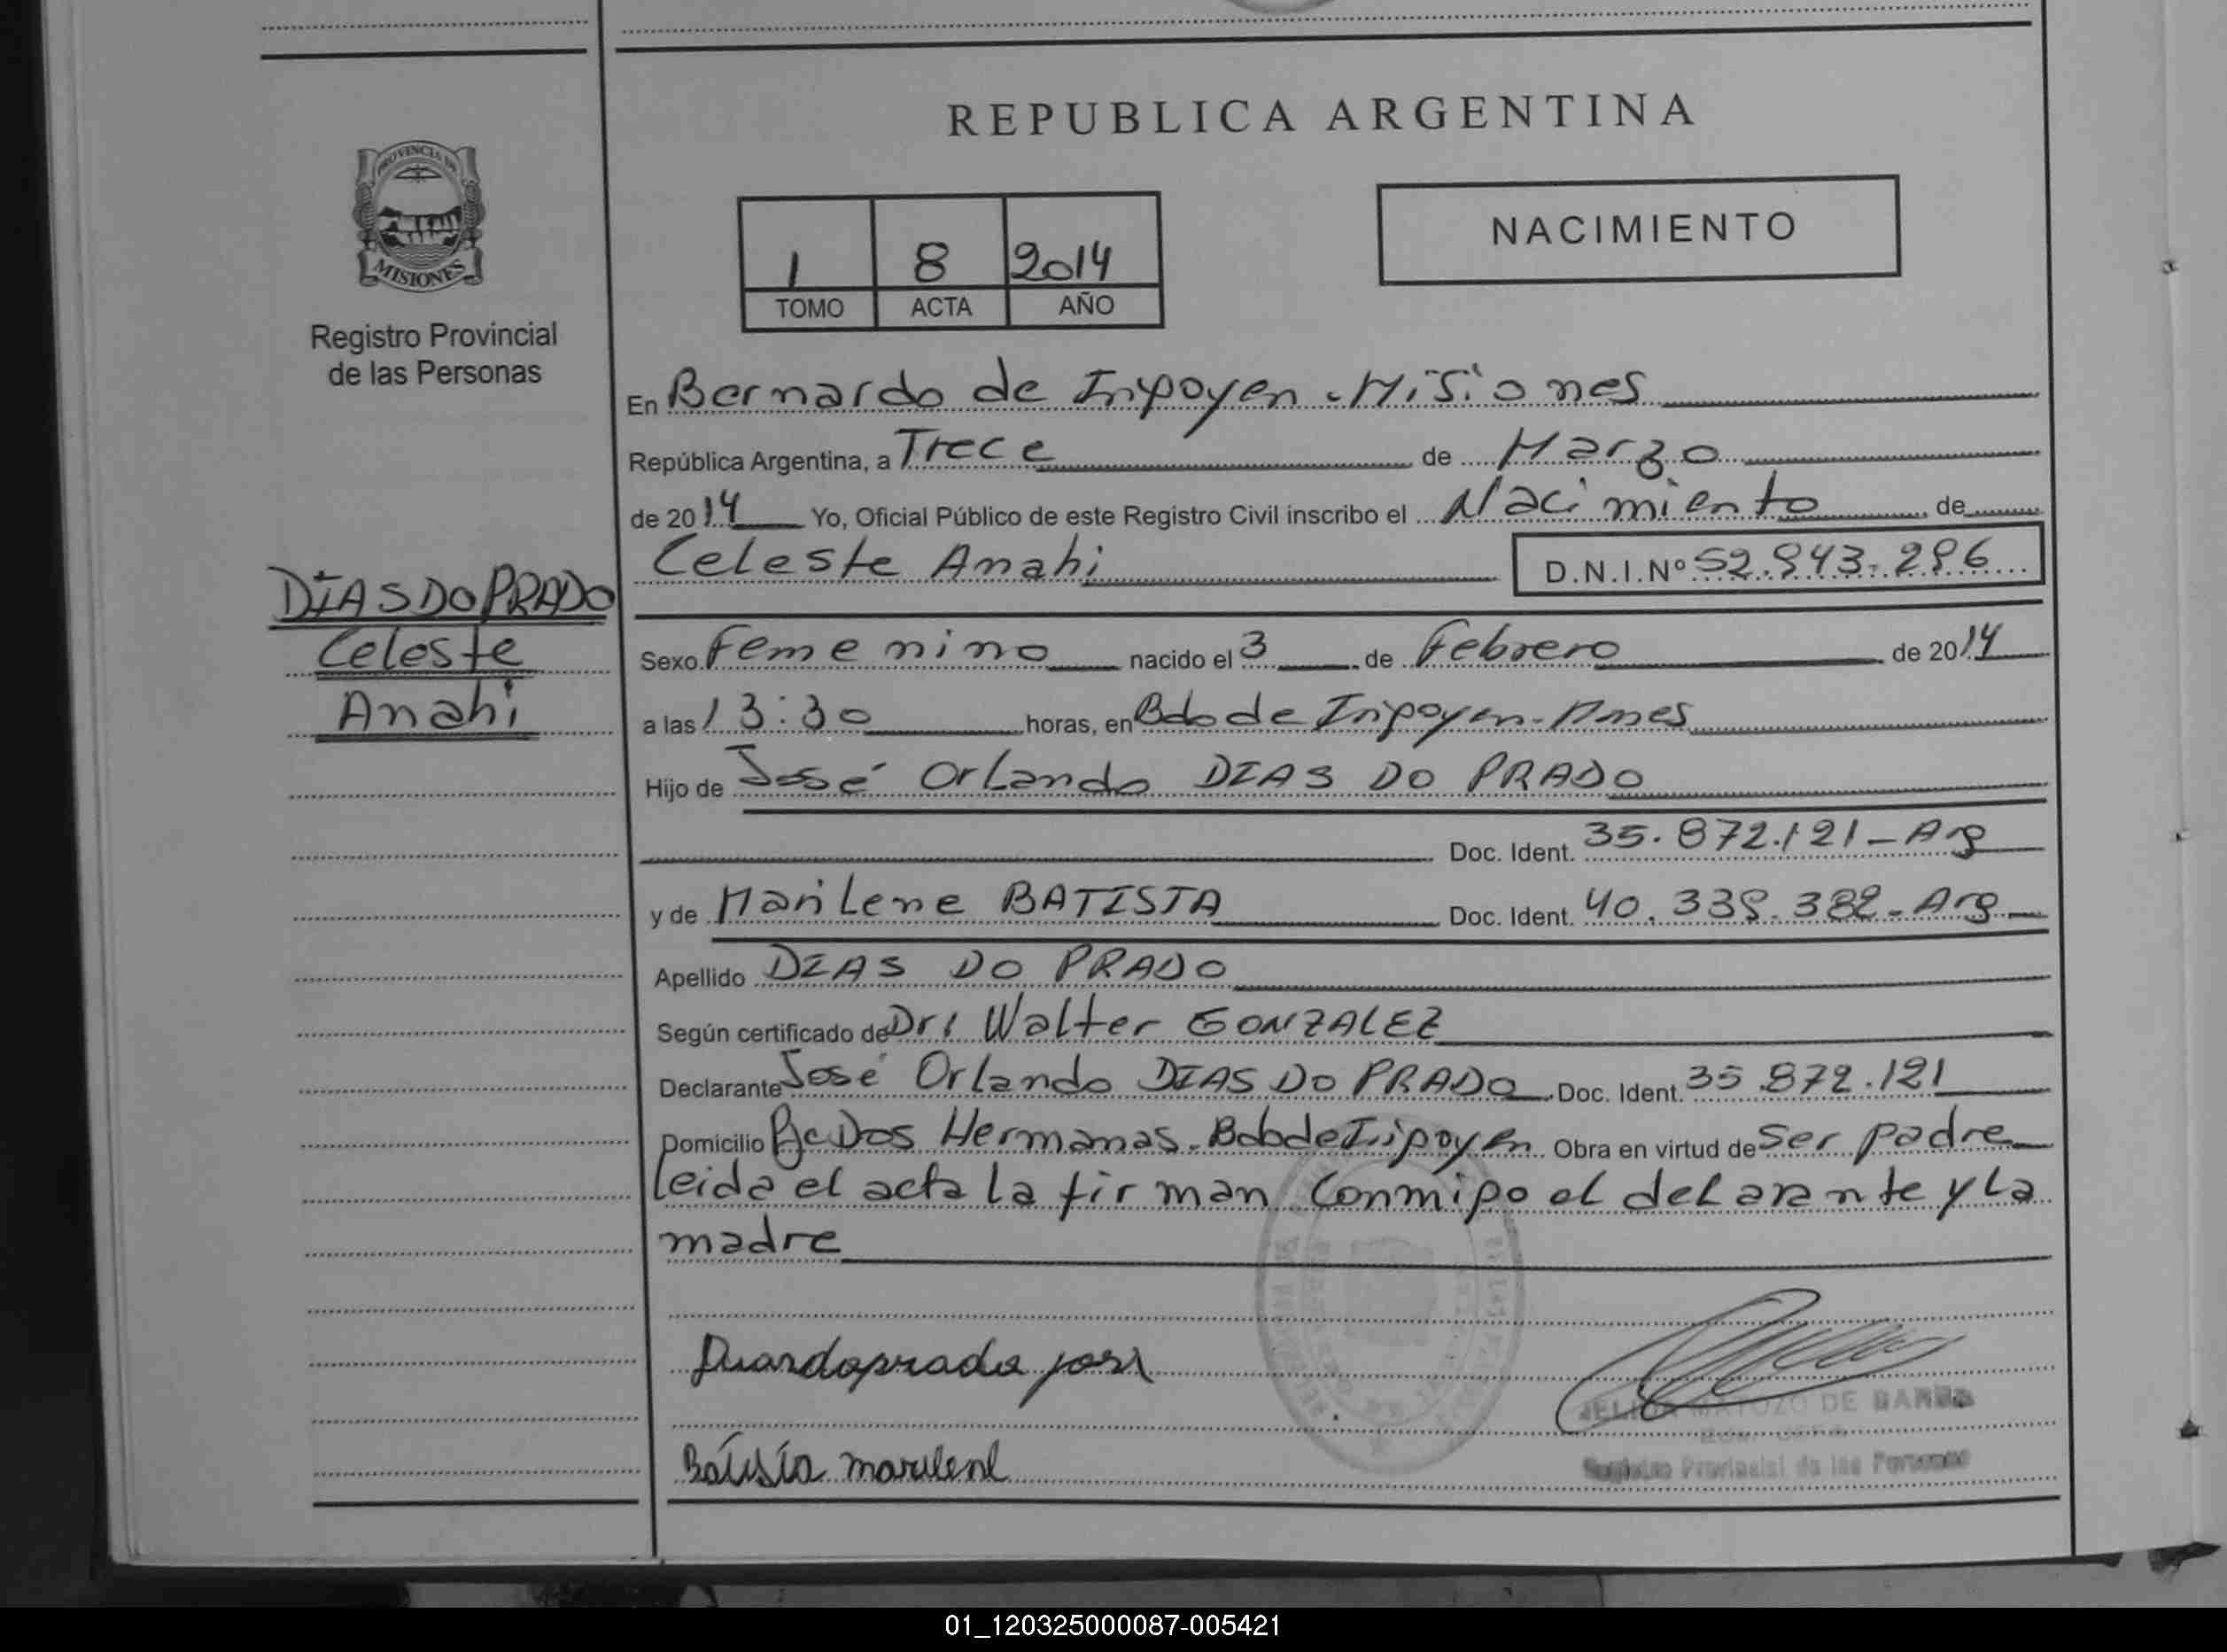 REPUBLICA ARGENTINA
PROVINCIA DE
MISIONES
Registro Provincial
de las Personas
NACIMIENTO
1 8 2014
TOMO ACTA AÑO
En Bernardo de Iripoyen - Misiones
República Argentina, a Trece de Marzo
de 2014 Yo, Oficial Público de este Registro Civil inscribo el Nacimiento de
Celeste Anahi D.N.I.Nº 52.943.296
DIAS DO PRADO
Celeste
Anahi
Sexo Femenino nacido el 3 de Febrero de 2014
a las 13:30 horas, en Bdo de Iripoyen - Mnes
Hijo de José Orlando DIAS DO PRADO
Doc. Ident. 35.872.121 - Arg
y de Marilene BATISTA Doc. Ident. 40.339.382 - Arg
Apellido DIAS DO PRADO
Según certificado de Dr. Walter GONZALEZ
Declarante José Orlando DIAS DO PRADO Doc. Ident. 35.872.121
Domicilio Pje Dos Hermanas - Bdo de Iripoyen Obra en virtud de Ser padre
leida el acta la firman conmipo el delarante y la
madre
Batista marilene
MATOZO DE
Registro Provincial de las Personas